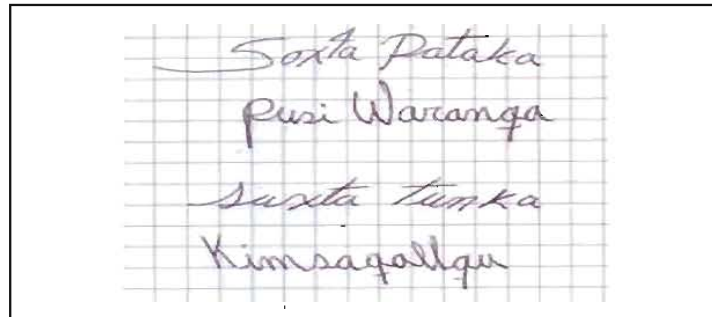 Soxta Pataka
pusi Waranqa
suxta tunka
Kimsaqallqu